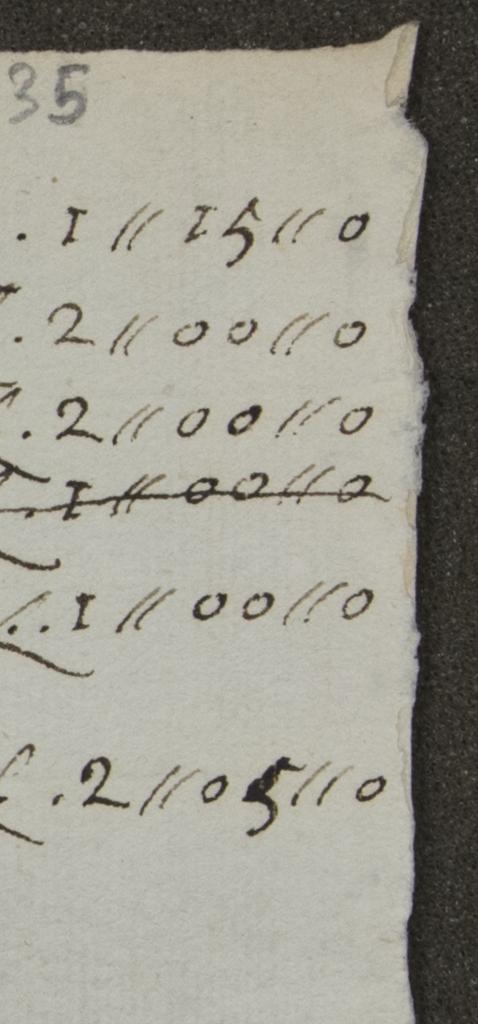 35
. 1 // 15 // 0
. 2 // 00 // 0
. 2 // 00 // 0
. 1 // 00 // 0
. . 1 // 00 // 0
. 2 // 05 // 0